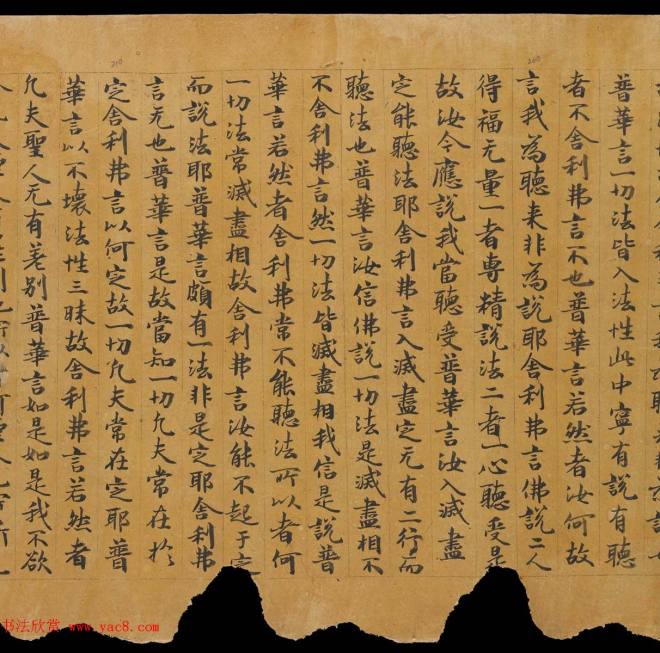 普華言一切法皆入法性此中寧有說有聽
者不舍利弗言不也普華言若然者汝何故
言我為聽来非為說耶舍利弗言佛說二人
得福无量一者專精說法二者一心聽受是
故汝今應說我當聽受普華言汝入滅盡
定能聽法耶舍利弗言入滅盡定无有二行而
聽法也普華言汝信佛說一切法是滅盡相不
不舍利弗言然一切法皆滅盡相我信是說普
華言若然者舍利弗常不能聽法所以者何
一切法常滅盡相故舍利弗言汝能不起于定
而說法耶普華言頗有一法非是定耶舍利弗
言无也普華言是故當知一切凢夫常在於
定舍利弗言以何定故一切凢夫常在定耶普
華言以不壞法性三昧故舍利弗言若然者
凢夫聖人无有差别普華言如是如是我不欲
书法欣赏 www.yac8.com
210
200